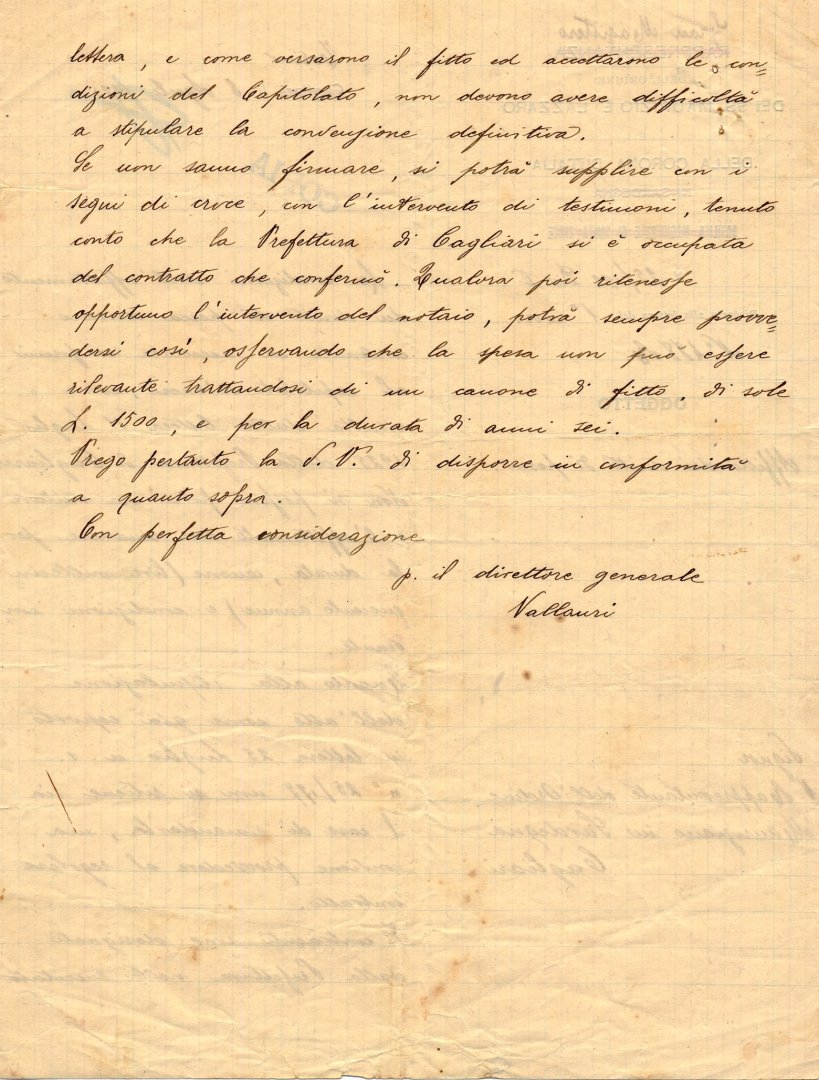 lettera, e come versarono il fitto ed accettarono le con=
dizioni del Capitolato, non devono avere difficoltà
a stipulare la convenzione definitiva.
Se non sanno firmare, si potrà supplire con i
segni di croce, con l'intervento di testimoni, tenuto
conto che la Prefettura di Cagliari si è occupata
del contratto che confermò. Qualora poi ritenesse
opportuno l'intervento del notaio, potrà sempre provve=
dersi così, osservando che la spesa non può essere
rilevante trattandosi di un canone di fitto, di sole
L. 1500, e per la durata di anni sei.
Prego pertanto la S. V. di disporre in conformità
a quanto sopra.
Con perfetta considerazione
p. il direttore generale
Vallauri